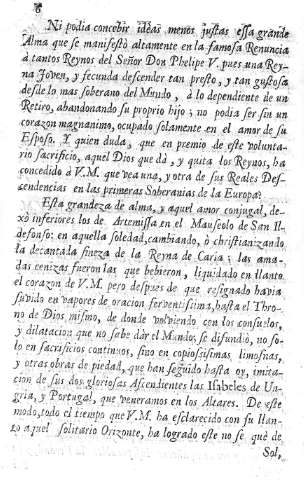 Ni podia concebir idéas menos justas essa grande
Alma que se manifestò altamente en la famosa Renuncia
à tantos Reynos del Señor Don Phelipe V. pues una Rey-
na Joven, y fecunda descender tan presto, y tan gustosa
desde lo mas soberano del Mundo, à lo dependiente de un
Retiro, abandonando su proprio hijo; no podia ser sin un
corazon magnanimo, ocupado solamente en el amor de su
Esposo. Y quien duda, que en premio de este volunta-
rio sacrificio, aquel Dios que dà, y quita los Reynos, ha
concedido à V.M. que vea una, y otra de sus Reales Des-
cendencias en las primeras Soberanias de la Europa?
Esta grandeza de alma, y aquel amor conjugal, de-
xò inferiores los de Artemissa en el Mauseolo de San Il-
defonso: en aquella soledad, cambiando, ò christianizando
la decantada fineza de la Reyna de Caria; las ama-
das cenizas fueron las que bebieron, liquidado en llanto
el corazon de V.M. pero despues de que resignado havia
subido en vapores de oracion ferventissima, hasta el Thro-
no de Dios mismo, de donde volviendo con los consuelos,
y dilatacion que no sabe dàr el Mundo; se difundiò, no so-
lo en sacrificios continuos, sino en copiosissimas limosnas,
y otras obras de piedad, que han seguido hasta oy, imita-
cion de sus dos gloriosas Ascendientes las Isabeles de Un-
gria, y Portugal, que veneramos en los Altares. De este
modo, todo el tiempo que V.M. ha esclarecido con su llan-
to aquel solitario Orizonte, ha logrado este no se què de
Sol,